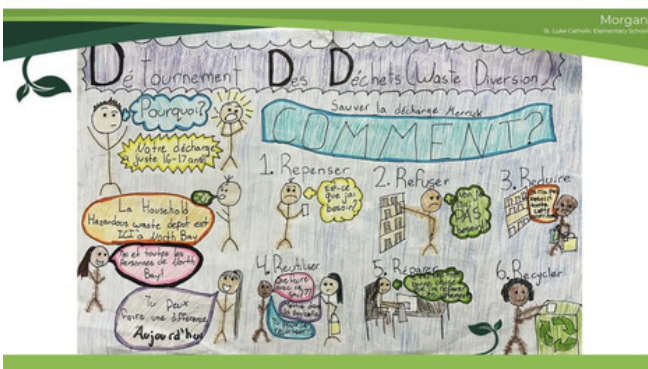 Morgan
St. Luke Catholic Elementary School
Détournement Des Déchets (Waste Diversion)
Pourquoi?
Notre décharge
juste 16-17 ans!
La Household
Hazardous waste depot est
ICI à North Bay
Toi et toutes les
Personnes de North
Bay!
Tu Peux
Faire une différence
Aujourd'hui
Sauver la décharge Merrick
COMMENT?
1. Repenser
Est-ce
que j'ai
besoin?
2. Refuser
PAS
3. Réduire
4. Réutiliser
5. Réparer
6. Recycler